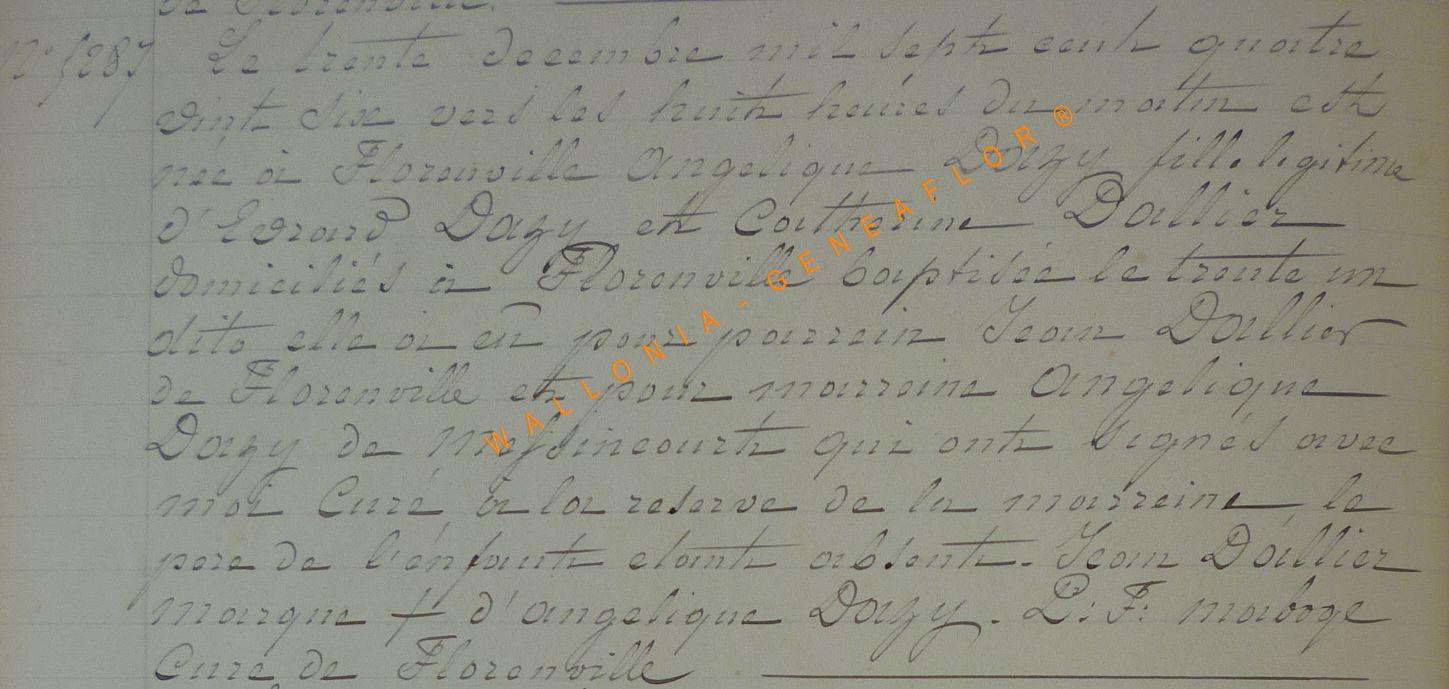 de Florenville.
N° 5287 Le trente decembre mil sept cent quatre
vint six vers les huit heures du matin est
née à Florenville Angelique Dazy fille legitime
d'Edrard Dazy et Catherine Dallier
domiciliés à Florenville baptisée le trente un
dito elle à eu pour parrein Jean Dallier
de Florenville et pour marreine Angelique
Dazy de qui ont signés avec
moi Curé à la reserve de la marreine le
pere de l'énfant etant absent. Jean Dallier
marque + d'angelique Dazy. P: F: maboge
Curé de Florenville
WALLONIA - GENEAFLOR ®